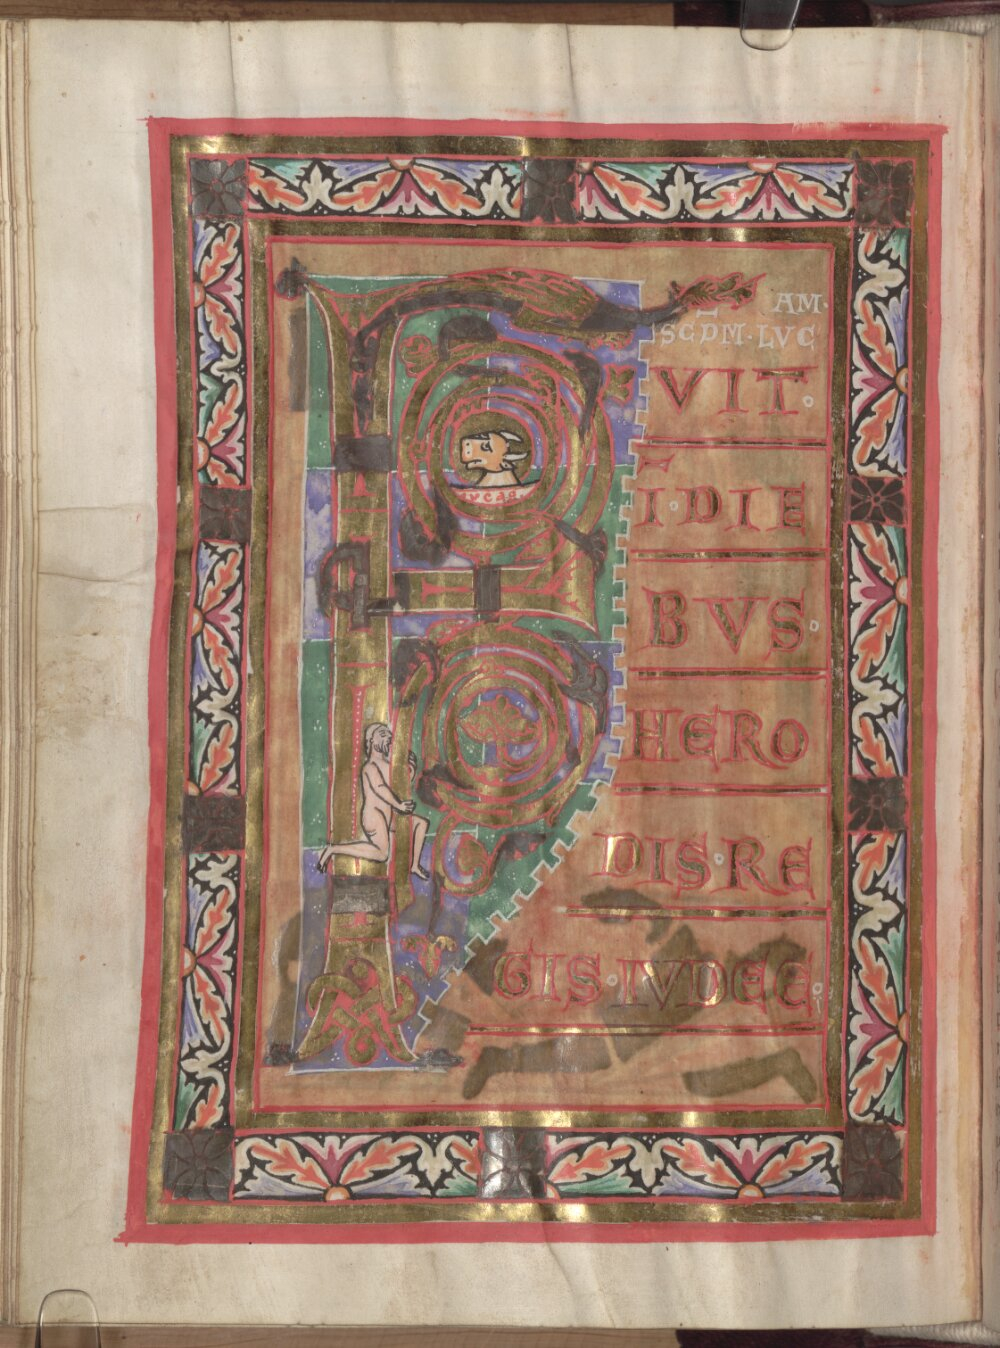 F
AM·
SCDM·LVC
VIT·
I·DIE
BVS·
HERO
DIS·RE
GIS·IVDEE·
lvcas